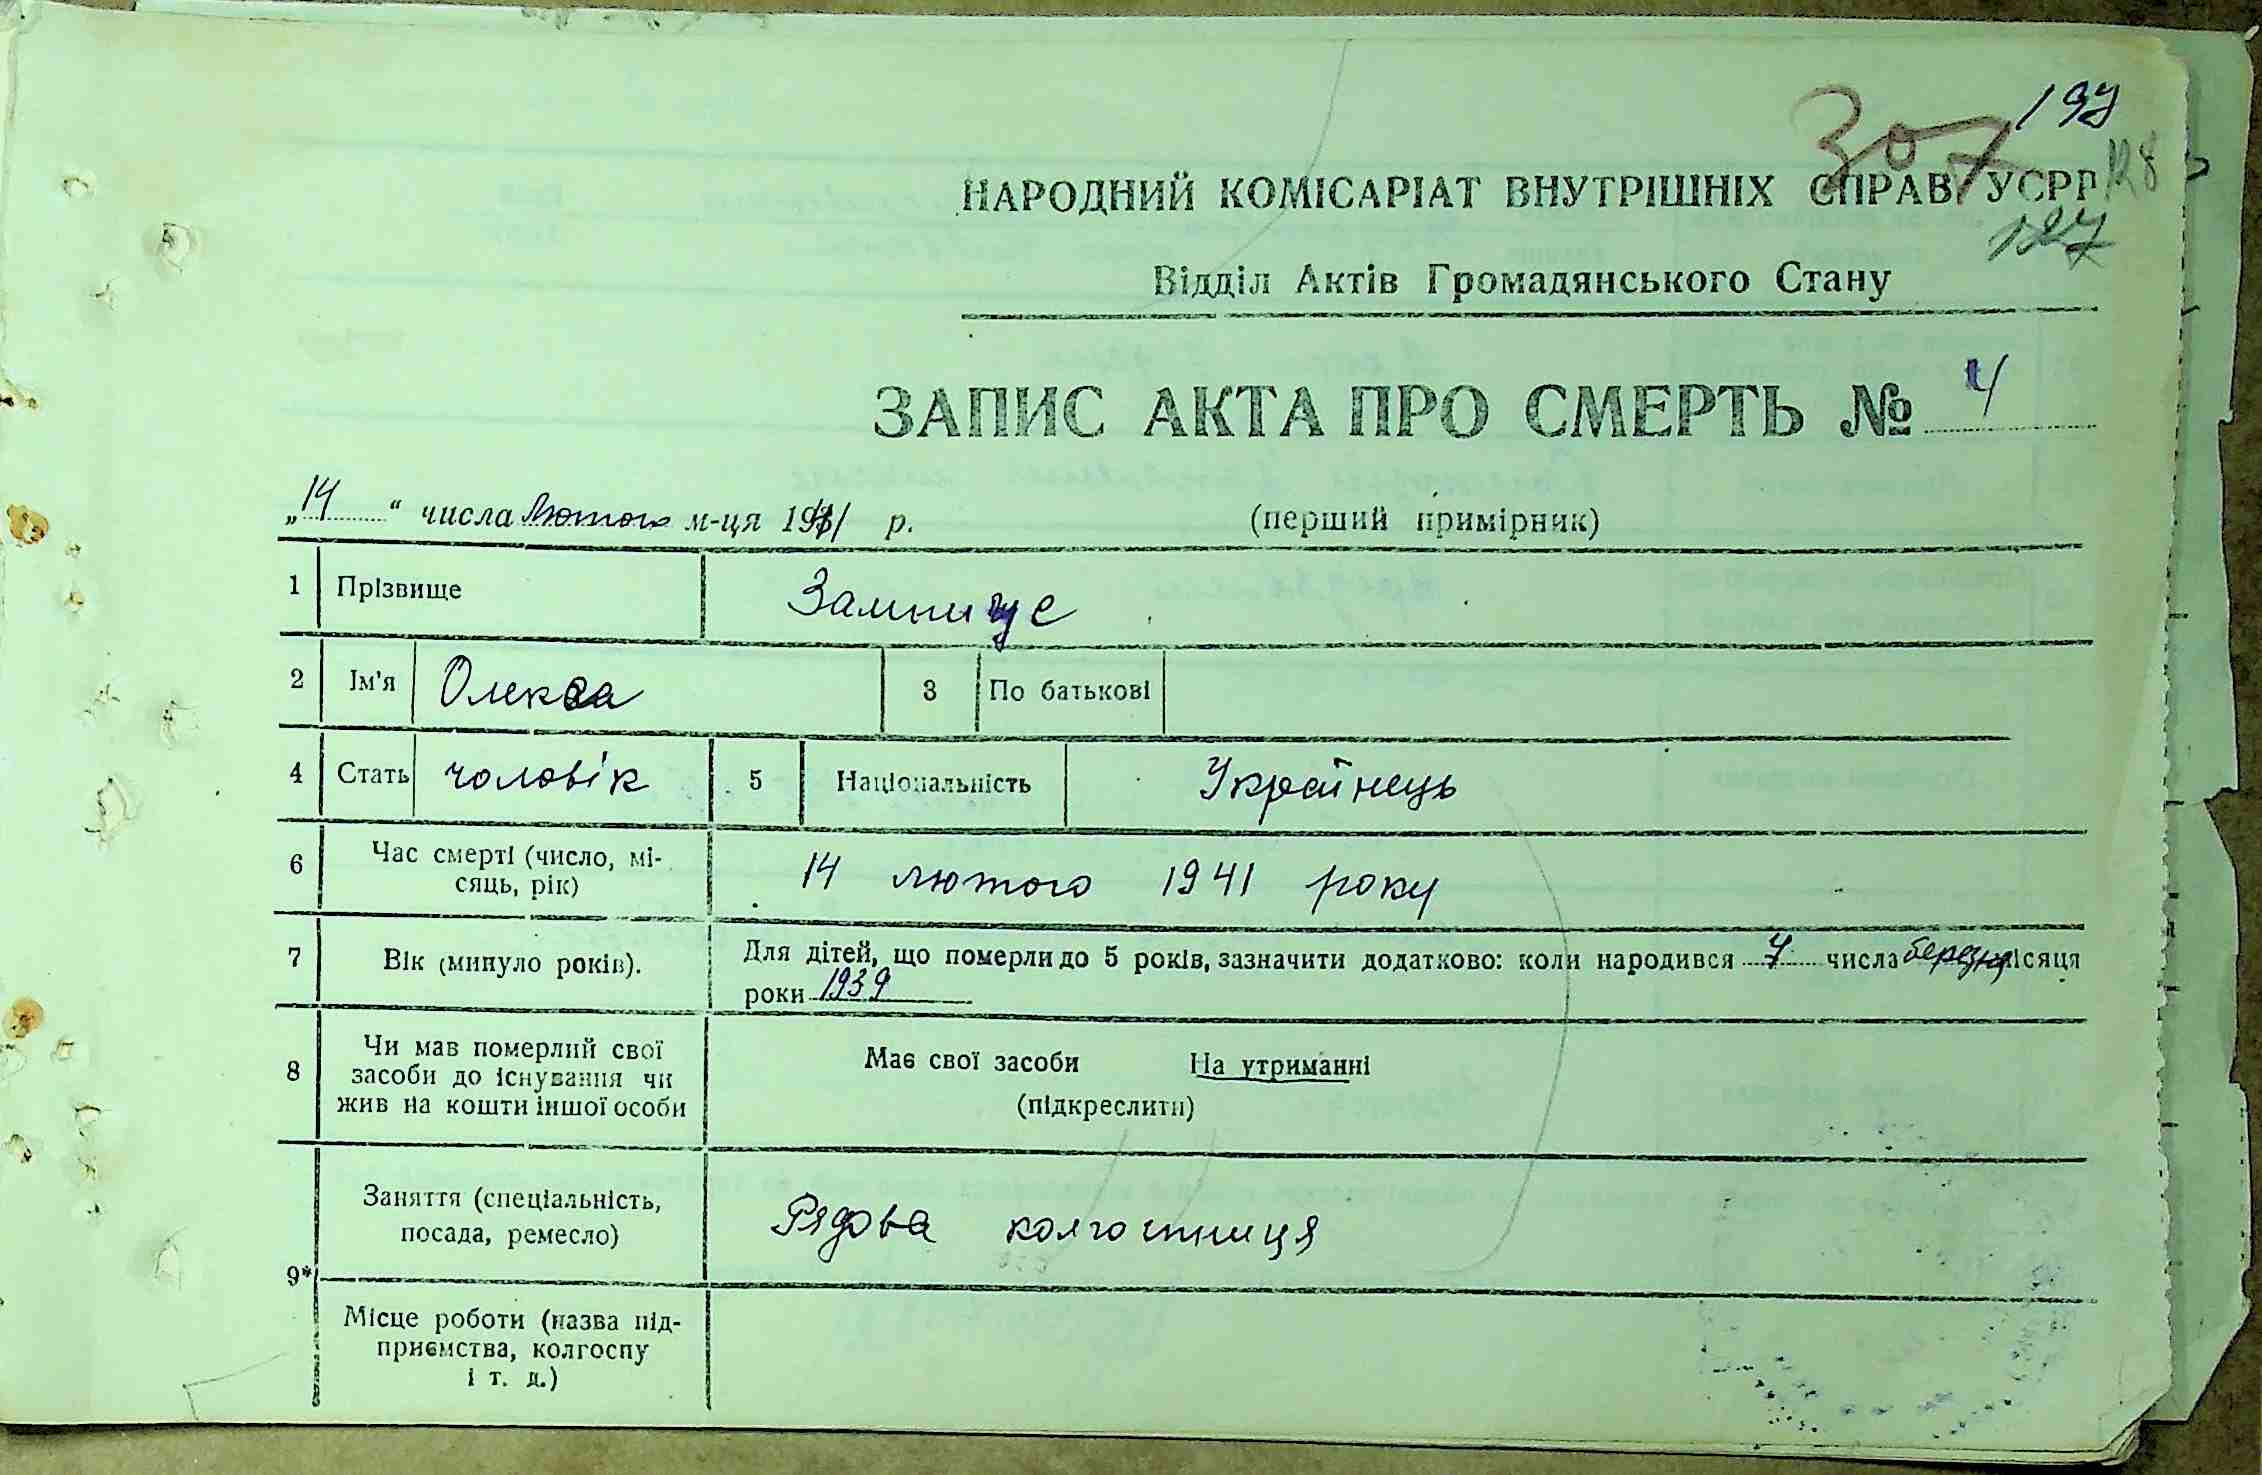 197
307
128
НАРОДНИЙ КОМІСАРІАТ ВНУТРІШНІХ СПРАВ УСРР
127
Відділ Актів Громадянського Стану
ЗАПИС АКТА ПРО СМЕРТЬ № 4
„14“ числа Лютого м-ця 1941 р. (перший примірник)
1 Прізвище
2 Ім'я Олекса 3 По батькові
4 Стать чоловік 5 Національність Українець
6 Час смерті (число, мі-
сяць, рік) 14 лютого 1941 року
7 Вік (минуло років). Для дітей, що померли до 5 років, зазначити додатково: коли народився числа березня місяця
роки 1939
8 Чи мав померлий свої
засоби до існування чи
жив на кошти іншої особи
Має свої засоби На утриманні
(підкреслити)
9* Заняття (спеціальність,
посада, ремесло) Рядова колгоспниця
Місце роботи (назва під-
приємства, колгоспу
і т. д.)